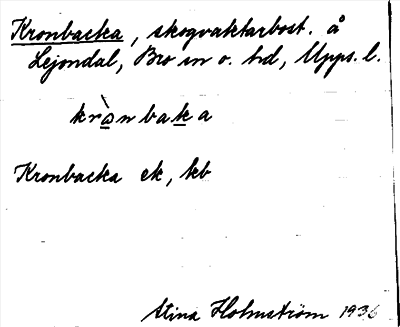 Kronbacka, skogvaktarbost. å
Lejondal, Bro sn o. hd, Upps. l.
krὼnbaka
Kronbacka ek, kb
Stina Holmström 1936